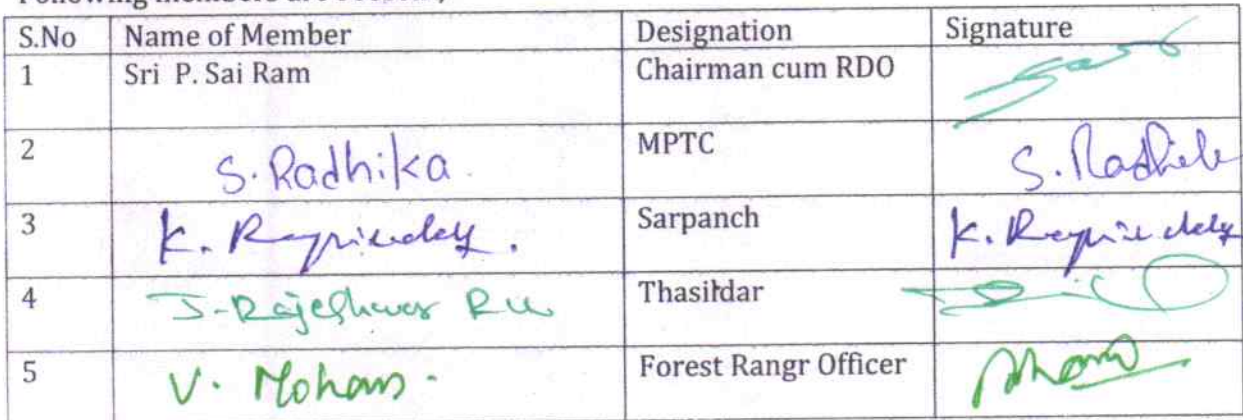 Following members are
S.No Name of Member Designation Signature
1 Sri P. Sai Ram Chairman cum RDO
2 S. Radhika MPTC S. Radhika
3 K. Designation Sarpanch K.
4 J. Rajeshwar Thasildar
5 V. Mohan Forest Rangr Officer